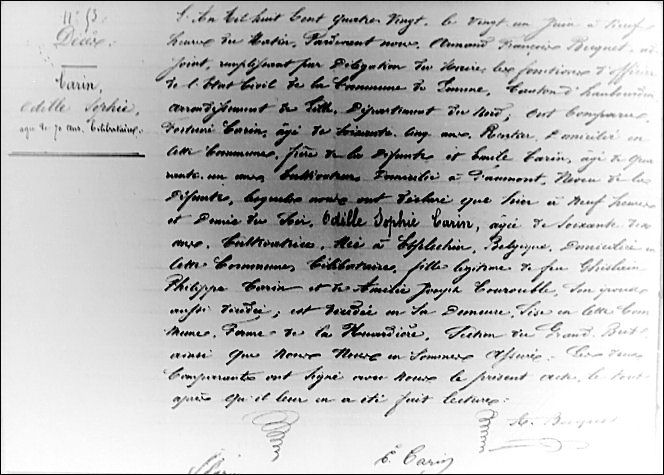 N° 13
Décès.
Carin,
Odille Sophie,
agée de 70 ans. Célibataire.
L'An mil huit Cent quatre Vingt, le vingt un Juin à Neuf
heures du Matin, Pardevant nous, Armand François Becquet, ad-
joint, remplissant par Délégation du Maire, les fonctions d'officier
de l'État Civil de la Commune de, Canton d'haubourdin
arrondissement de Lille, Département du Nord; Ont Comparu,
Carin, âgé de Soixante Cinq ans, Rentier, Domicilié en
cette Commune, frère de la Défunte et Emile Carin, âgé de Qua-
rante un ans, Cultivateur, Domicilié à, Neveu de la
Défunte, lesquels nous ont déclaré que hier à Neuf heures
et Demie du Soir, Odille Sophie Carin, âgée de Soixante dix
ans, Cultivatrice, Née à Esplechin, Belgique, Domiciliée en
cette Commune, Célibataire, fille légitime de feu Ghislain
Philippe Carin et de Amélie Joseph Courouble, Son épouse
aussi décédée; est décédée en Sa Demeure, Sise en cette Com-
mune, Ferme de la, Section du Grand
ainsi que Nous Nous en Sommes Assuré. Les deux
Comparants ont Signé avec Nous le présent acte, le tout
après qu'il leur en a été fait lecture.
A. Becquet
E. Carin